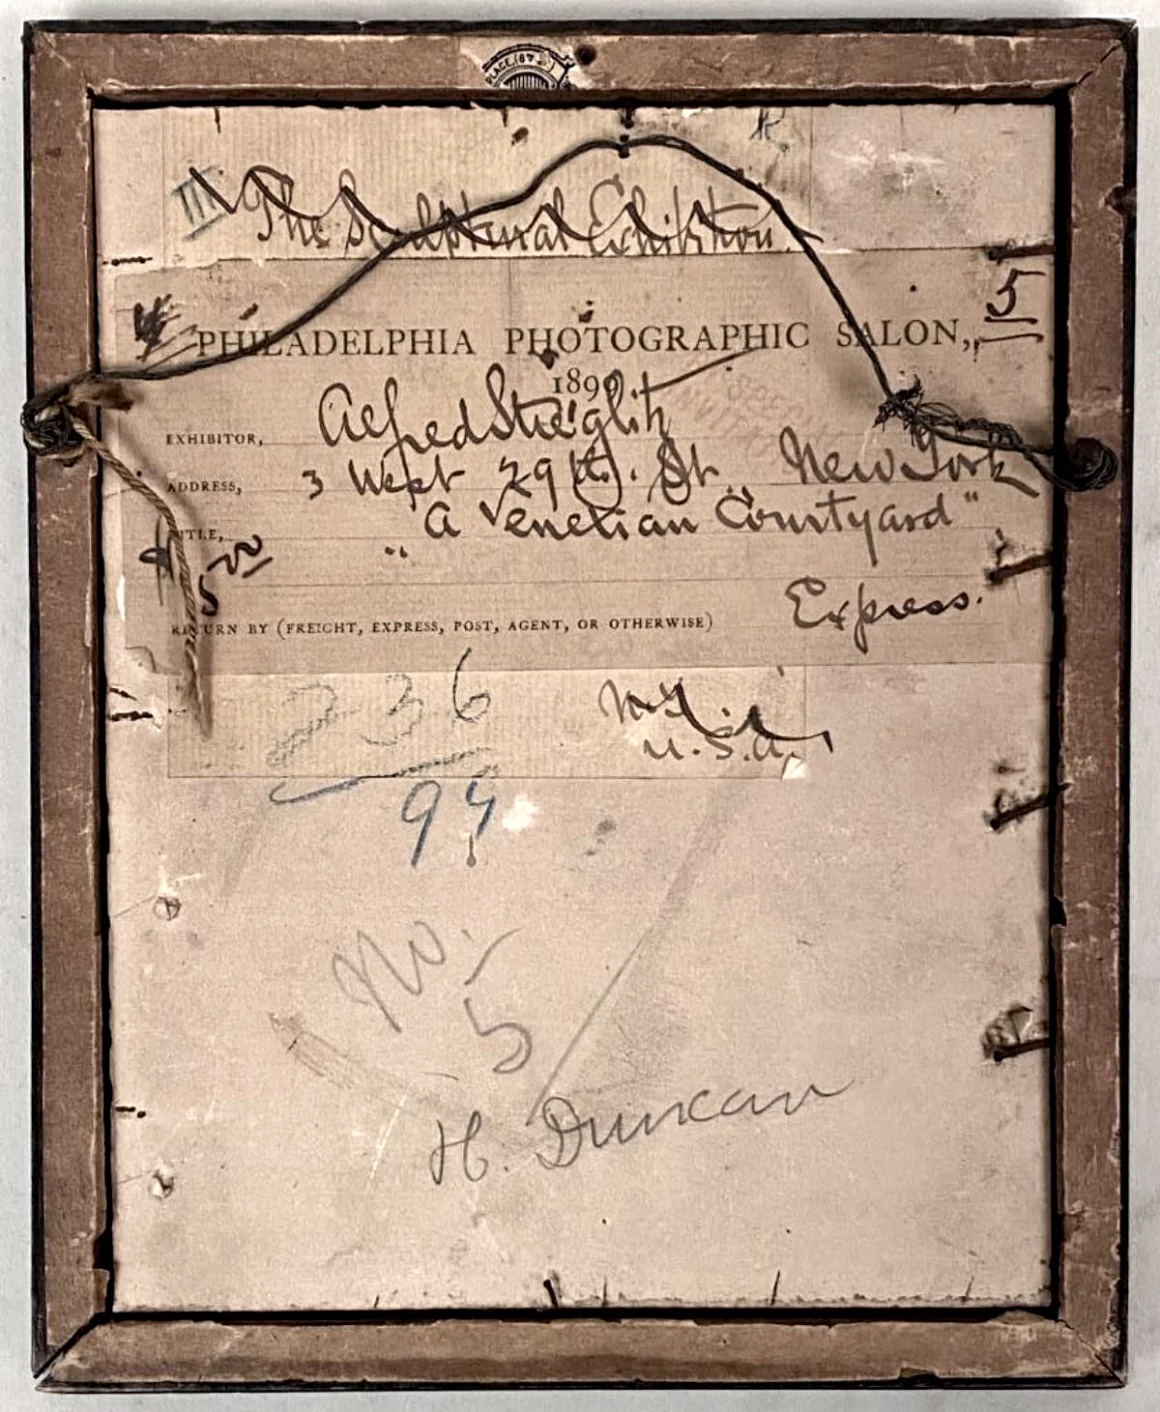 PLACE, (8
III The Sculptural Exhibition
5
PHILADELPHIA PHOTOGRAPHIC SALON,
1899
EXHIBITOR, Alfred Stieglitz
ADDRESS, 3 West 29th. St. New York
TITLE, "A Venetian Courtyard"
5
RETURN BY (FREIGHT, EXPRESS, POST, AGENT, OR OTHERWISE) Express.
236
N.Y.
U.S.A.
99
No.
5
H. Duncan